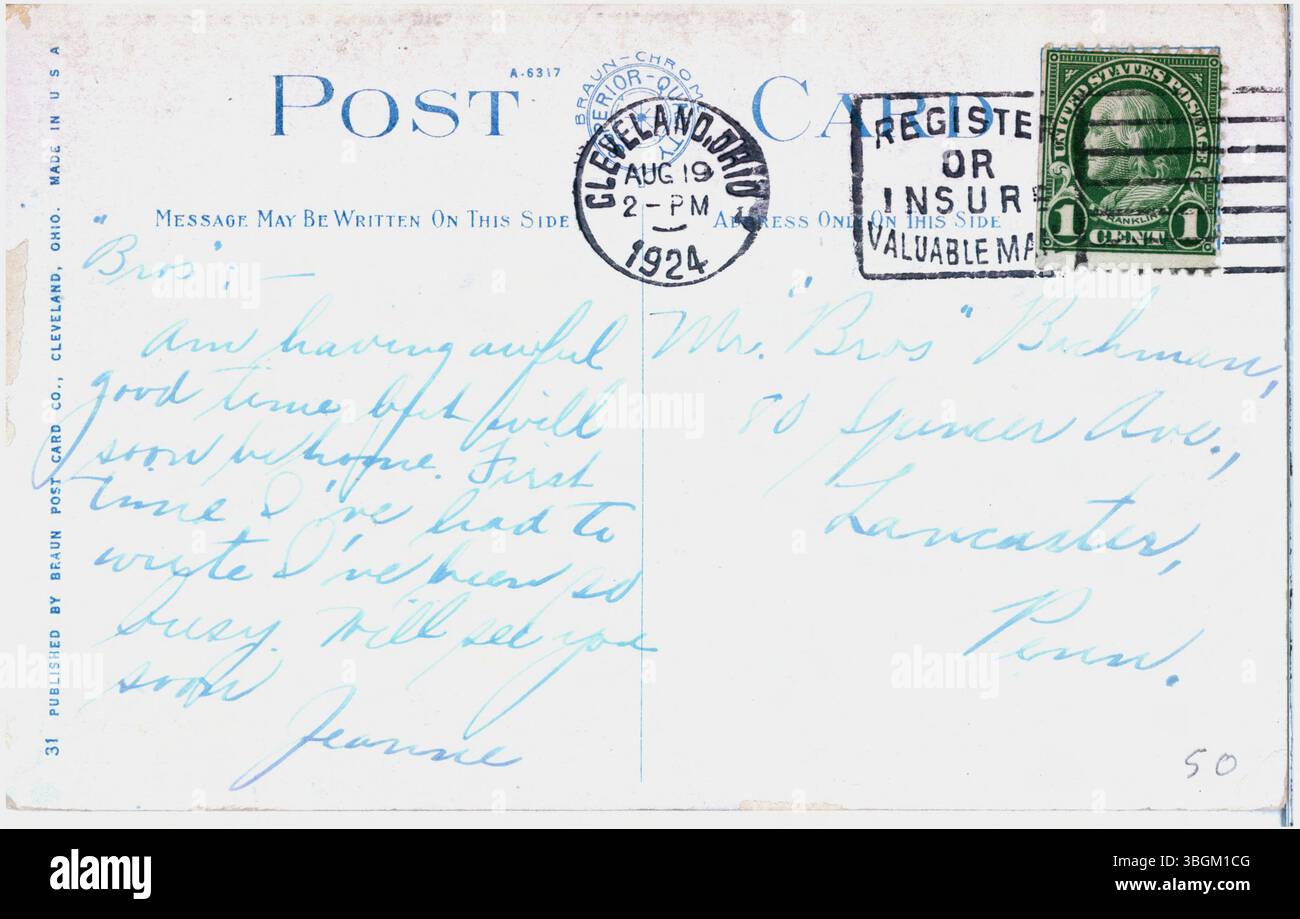 POST CARD
A-6317
BRAUN-CHROM
SUPERIOR-QUALITY
CLEVELAND, OHIO
AUG 19
2-PM
1924
REGISTE
OR
INSURE
VALUABLE MA
UNITED STATES POSTAGE
FRANKLIN
1 CENT 1
MESSAGE MAY BE WRITTEN ON THIS SIDE
ADDRESS ONLY ON THIS SIDE
"Bros":—
Am having awful
good time but will
soon be home. First
time I've had to
write I've been so
busy. Will see you
soon
Jeanne
Mr. "Bros" Bachman,
80 Spencer Ave.,
Lancaster,
Penn.
50
31 PUBLISHED BY BRAUN POST CARD CO., CLEVELAND, OHIO. MADE IN U S A
alamy
alamy
Image ID: 3BGM1CG
www.alamy.com